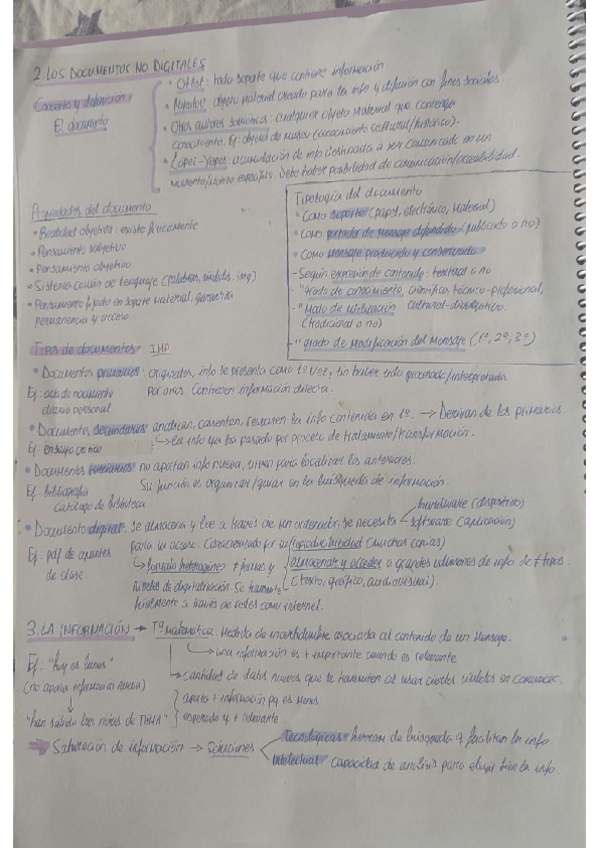 2. LOS DOCUMENTOS NO DIGITALES
Concepto y definición
El documento
• Otlet: todo soporte que contiene información
• Mundos: objeto material creado para la info y difusión con fines sociales.
• Otros autores soviéticos: cualquier objeto material que contenga
conocimiento. Ej: objetos de museo (conocimiento cultural/histórico).
• López-Yepes: acumulación de info destinada a ser comunicada en un
específico. Debe haber posibilidad de comunicación/accesibilidad.
Propiedades del documento
• Realidad objetiva: existe físicamente
• Pensamiento subjetivo
• Pensamiento objetivo
• Sistema común de lenguaje (palabras, símbolos, img)
• Pensamiento fijado en soporte material, garantiza
permanencia y acceso.
Tipología del documento
• Como soporte (papel, electrónico, material)
• Como portador de mensaje difundido (publicado o no)
• Como mensaje producido y conservado
- Según expresión de contenido: textual o no
- " grado de conocimiento, científico, técnico-profesional,
- " modo de utilización cultural-divulgativo.
(tradicional o no)
- " grado de modificación del mensaje (1º, 2º, 3º)
Tipos de documentos IMP
• Documentos primarios: originales, info se presenta como 1º vez, sin haber sido procesada/interpretada
Ej: acta de nacimiento por otros. Contienen información directa.
diario personal
• Documentos secundarios: analizan, comentan, resumen la info contenida en 1º. → Derivan de los primarios
Ej: ensayo crítico ↳ la info ya ha pasado por proceso de tratamiento/transformación.
• Documentos terciarios: no aportan info nueva, sirven para localizar los anteriores.
Ej: bibliografía Su función es organizar/guiar en la búsqueda de información.
catálogo de biblioteca
• Documento digital: se almacena y lee a través de un ordenador, se necesita hardware (dispositivo)
software (aplicación)
Ej: pdf de apuntes para su acceso. Caracterizado por su reproductibilidad (muchas copias)
de clase ↳ formato heterogéneo ≠ formas y almacenar y acceder a grandes volúmenes de info de ≠ tipos.
niveles de digitalización. Se transmite (texto, gráfico, audiovisual).
finalmente a través de redes como internet.
3. LA INFORMACIÓN → Tª Matemática. Medida de incertidumbre asociada al contenido de un mensaje.
↳ una información es + importante cuando es relevante
Ej: "hoy es lunes" ↳ cantidad de datos nuevos que se transmiten al usar ciertos símbolos en comunicac.
(no aporta información nueva)
↓ aporta + información pq es menos
"han salido las notas de " esperado y + relevante
⇒ Saturación de información → Soluciones
Tecnológicas: herram de búsqueda q facilitan la info.
Intelectual: capacidad de análisis para elegir bien la info.